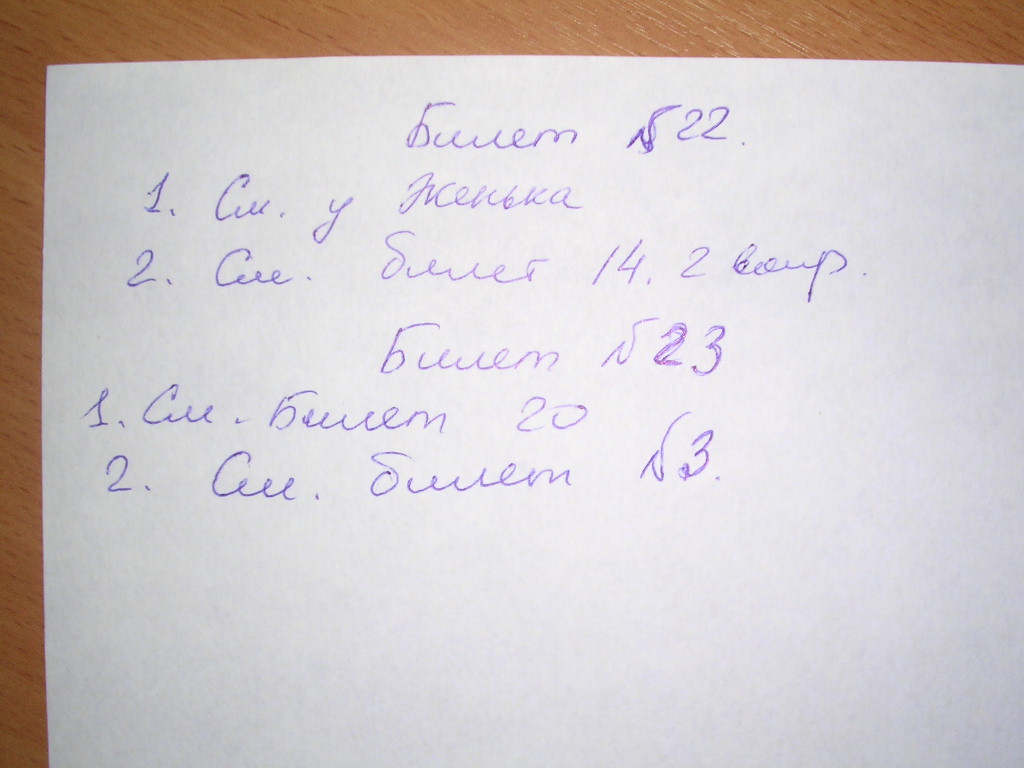 Билет №22.
1. См. у Женька
2. См. билет 14. 2 вопр.
Билет №23
1. См. Билет 20
2. См. билет №3.